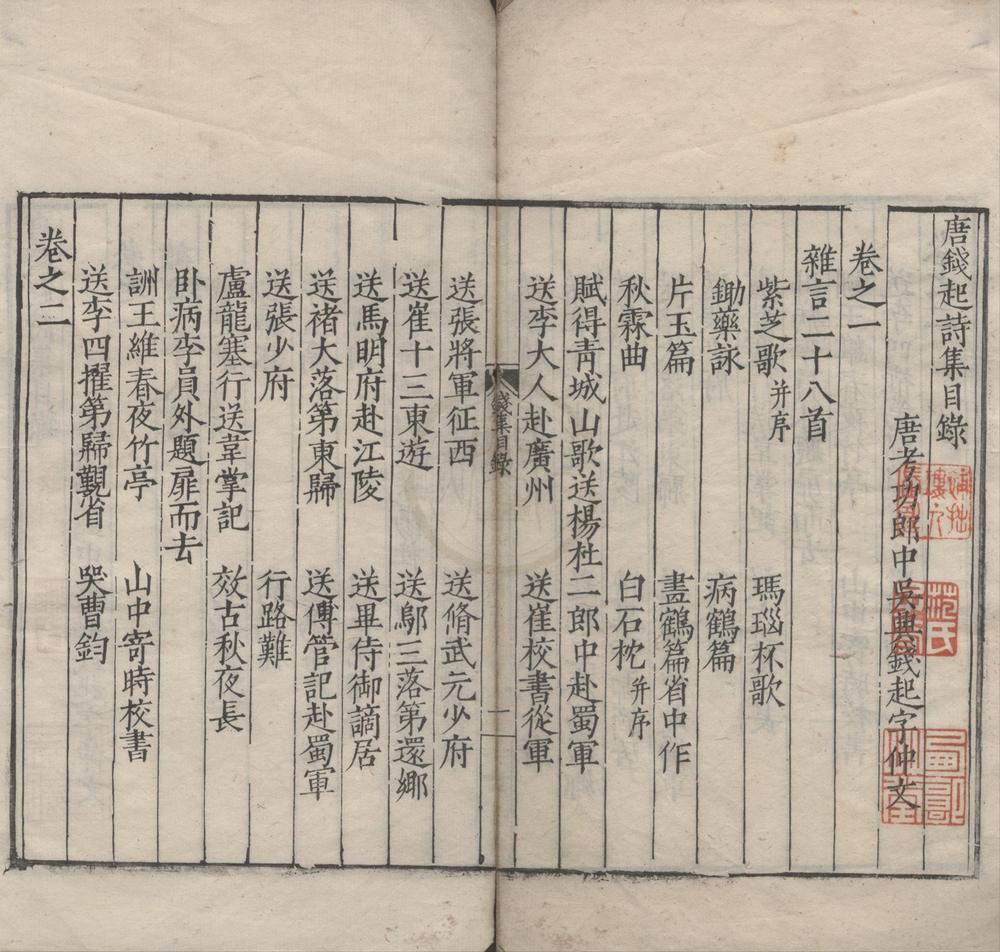 唐錢起詩集目錄
唐考功郎中吳興錢起字仲文
卷之一
雜言二十八首
紫芝歌并序　瑪瑙杯歌
鋤藥詠　病鶴篇
片玉篇　畫鶴篇省中作
秋霖曲　白石枕并序
賦得青城山歌送楊杜二郎中赴蜀軍
送李大人赴廣州　送崔校書從軍
錢集目錄　一
送張將軍征西　送脩武元少府
送崔十三東遊　送鄔三落第還鄉
送馬明府赴江陵　送畢侍御謫居
送褚大落第東歸　送傅管記赴蜀軍
送張少府　行路難
盧龍塞行送韋掌記　效古秋夜長
卧病李員外題扉而去
詶王維春夜竹亭　山中寄時校書
送李四擢第歸覲省　哭曹鈞
卷之二